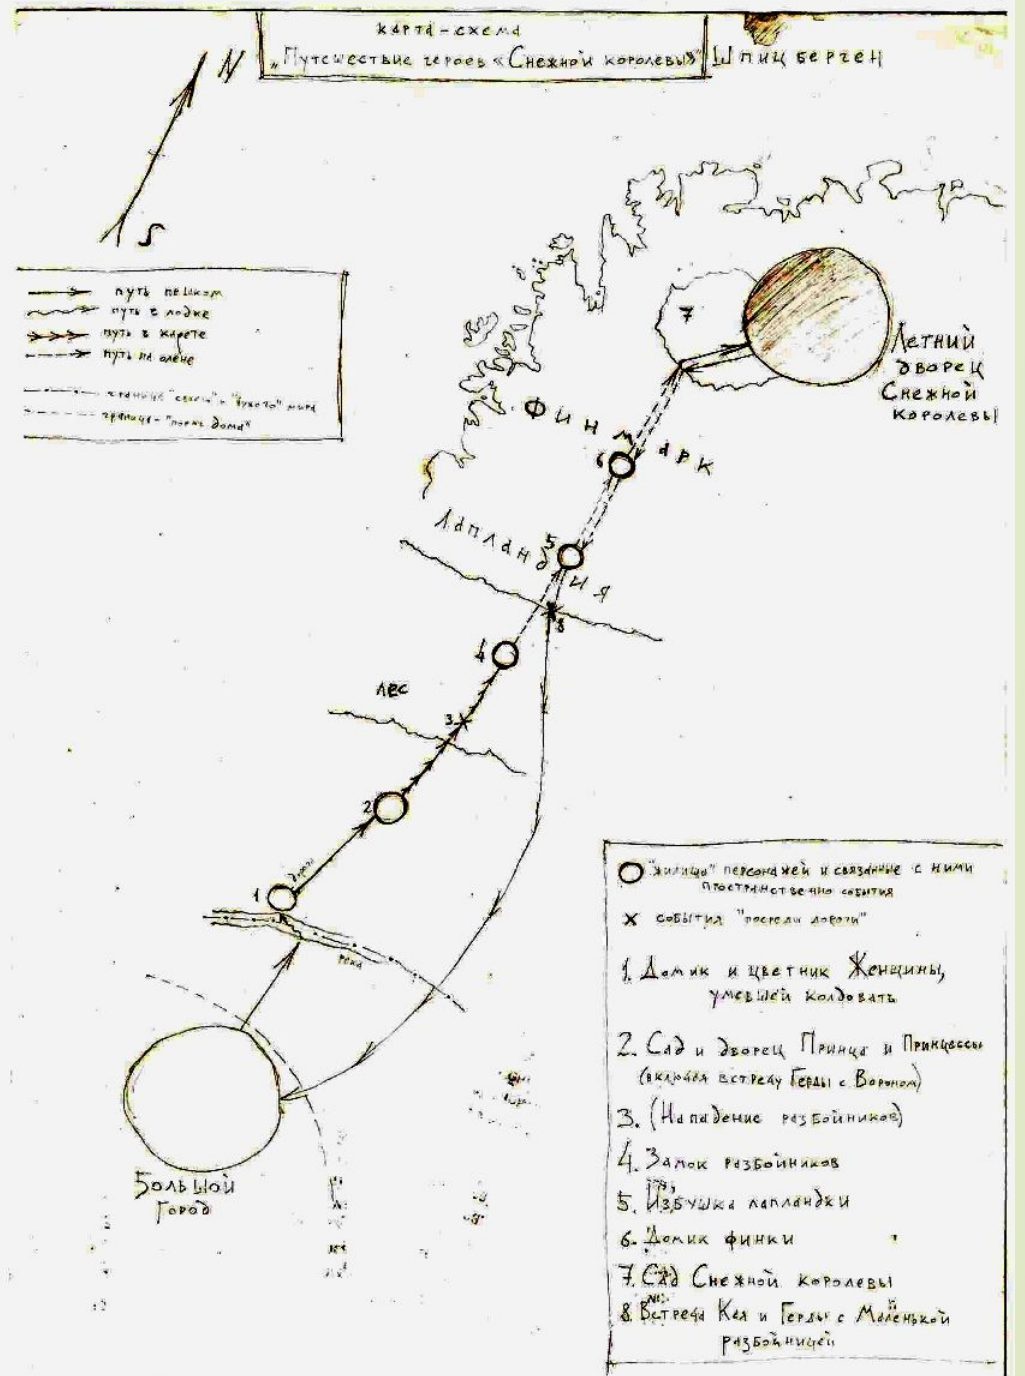 карта-схема
„Путешествие героев «Снежной королевы»"
Шпицберген
N
S
путь пешком
путь в лодке
путь в карете
путь на олене
граница "своего" и "чужого" мира
граница - "порог дома"
7
Летний
дворец
Снежной
королевы
Финмарк
6
Лапландия
5
8
4
лес
3
2
дорога
1
река
Большой
город
"жилища" персонажей и связанные с ними
пространственно события
события "посреди дороги"
1. Домик и цветник Женщины,
умевшей колдовать
2. Сад и дворец Принца и Принцессы
(включая встречу Герды с Вороном)
3. (Нападение разбойников)
4. Замок разбойников
5. Избушка лапландки
6. Домик финки
7. Сад Снежной королевы
8. Встреча Кая и Герды с Маленькой
разбойницей